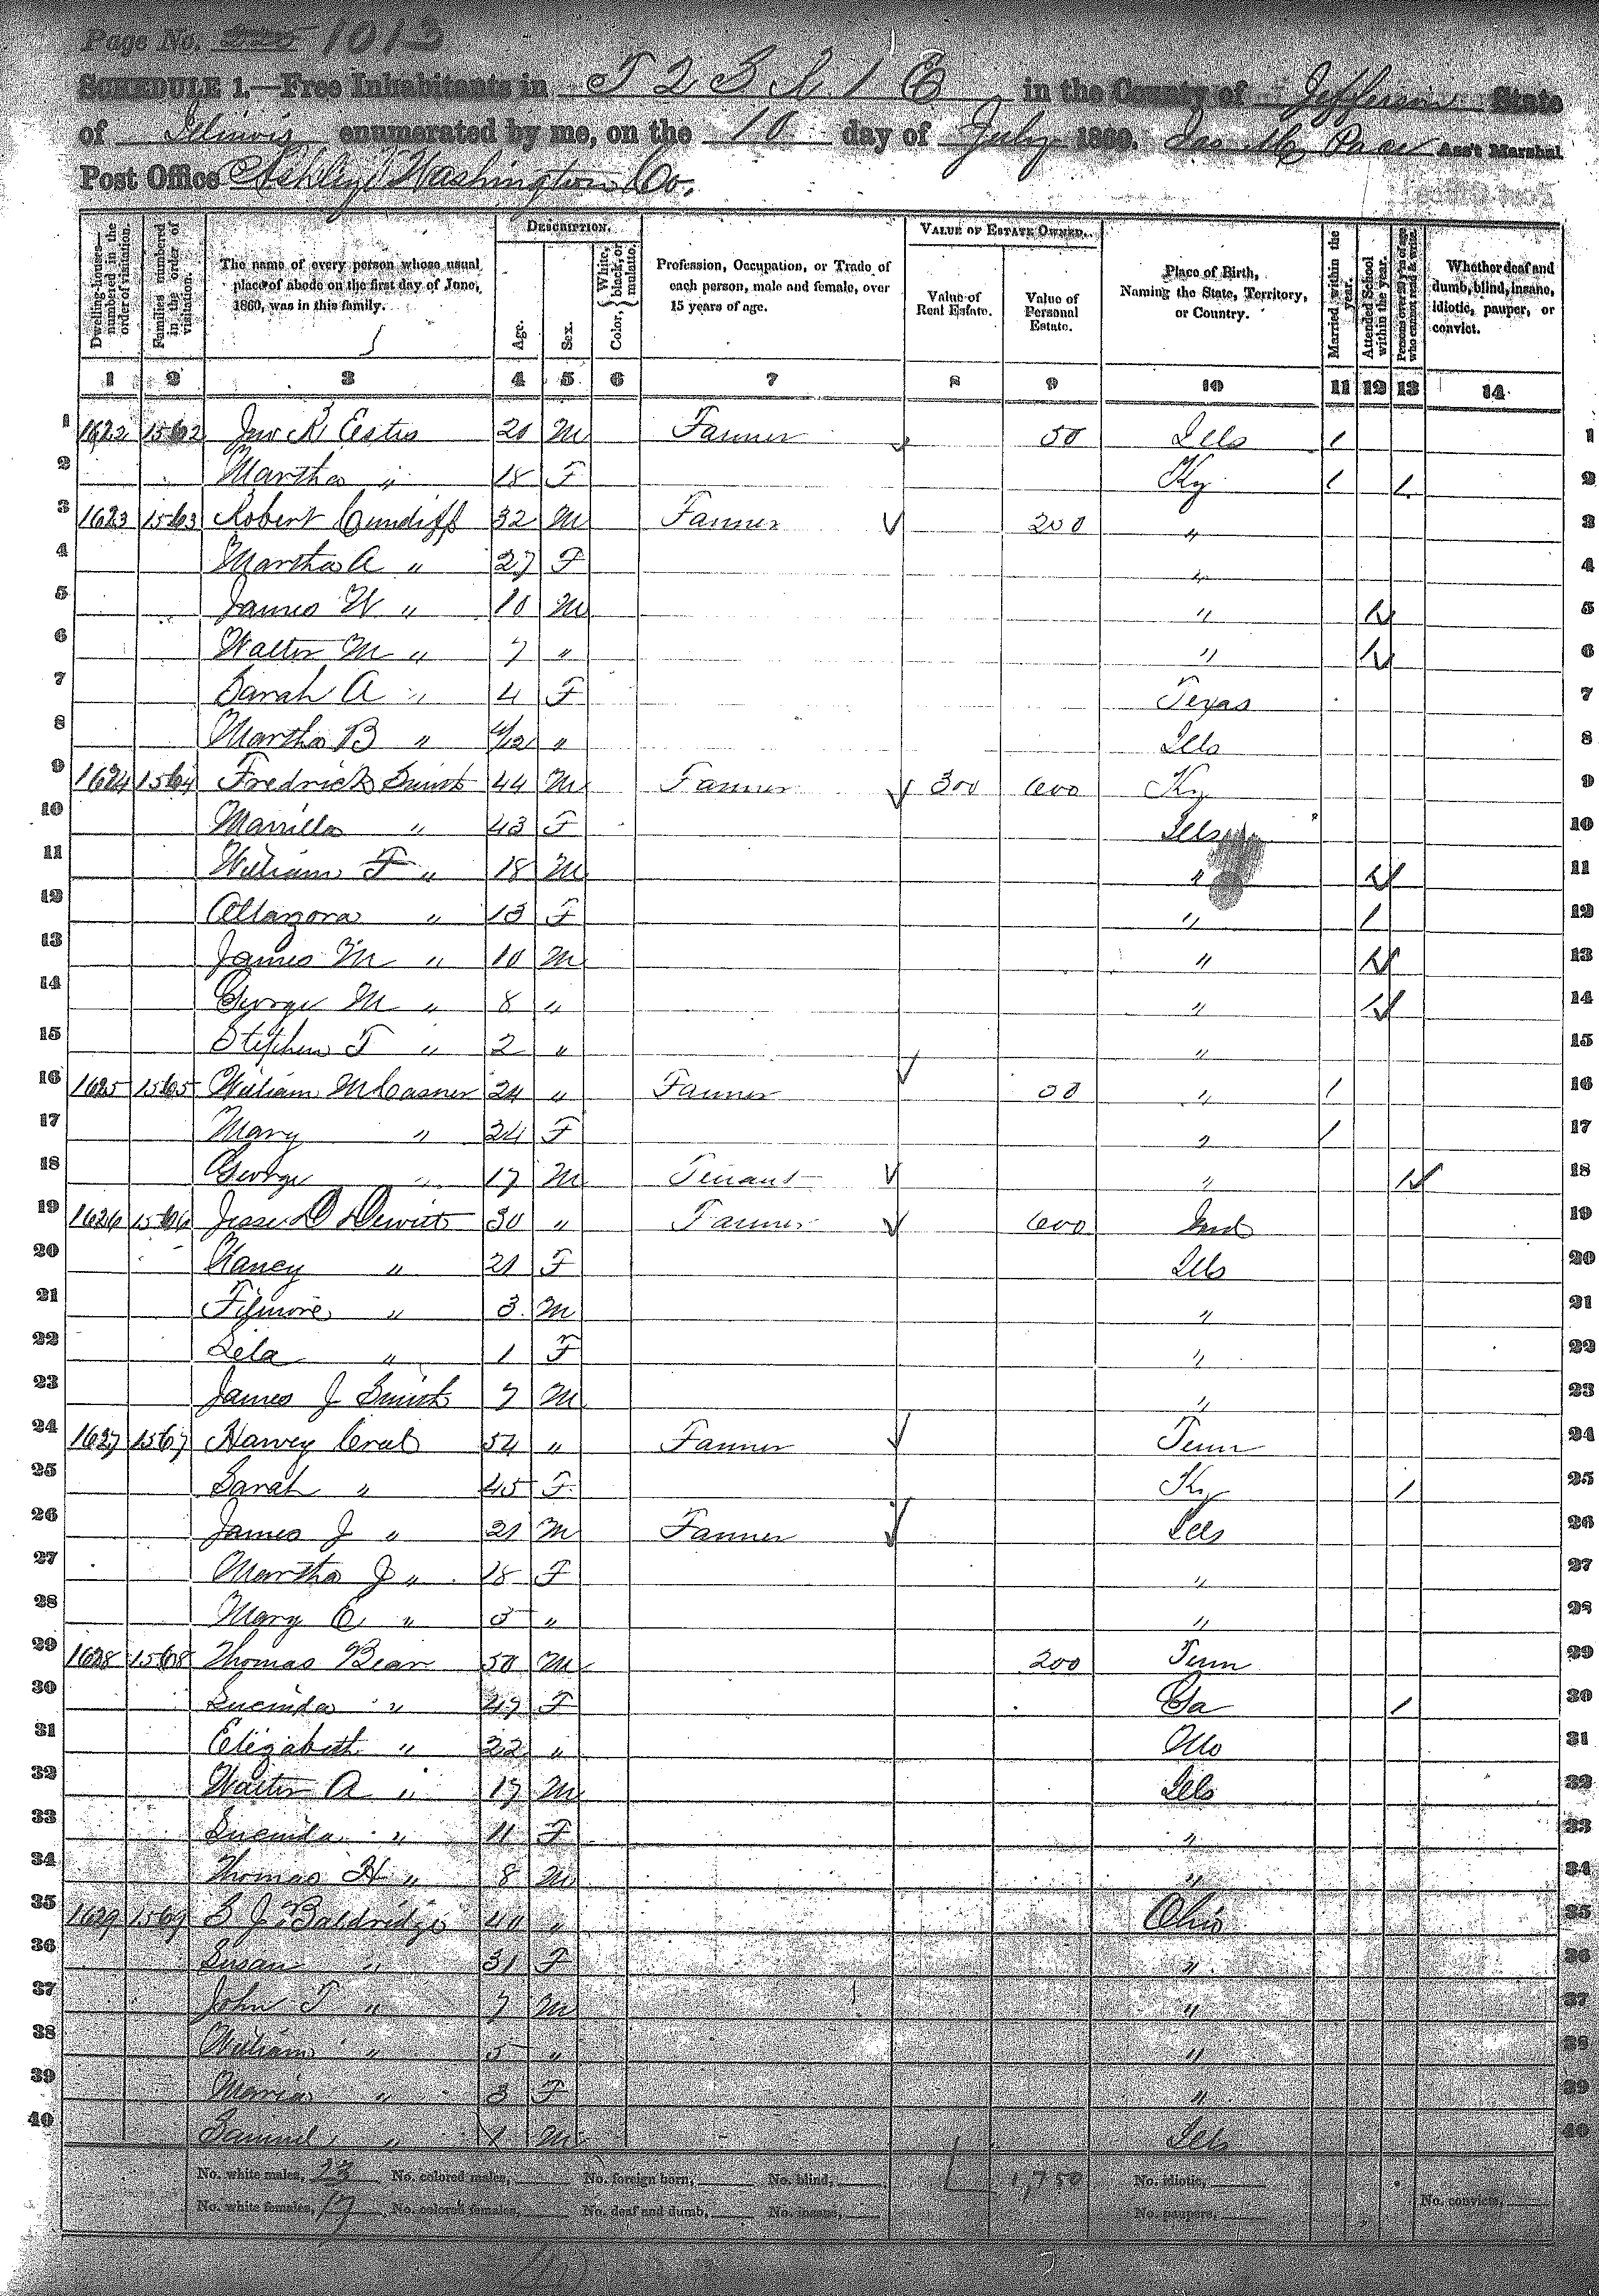 Page No. 225 1013
SCHEDULE 1.—Free Inhabitants in T 2 S R 1 E in the County of Jefferson State
of Illinois enumerated by me, on the 10 day of July 1860. Jas M Pace Ass't Marshal
Post Office Ashley Washington Co.
Dwelling-houses—numbered in the order of visitation.
Families numbered in the order of visitation.
The name of every person whose usual place of abode on the first day of June, 1860, was in this family.
DESCRIPTION.
Age.
Sex.
Color, { White, black, or mulatto.
Profession, Occupation, or Trade of each person, male and female, over 15 years of age.
VALUE OF ESTATE OWNED.
Value of Real Estate.
Value of Personal Estate.
Place of Birth, Naming the State, Territory, or Country.
Married within the year.
Attended School within the year.
Persons over 20 y'rs of age who cannot read & write.
Whether deaf and dumb, blind, insane, idiotic, pauper, or convict.
1 2 3 4 5 6 7 8 9 10 11 12 13 14
1 1622 1562 Jno R Estes 20 M Farmer 50 Ills / 1
2 Martha " 18 F Ky / / 2
3 1623 1563 Robert Cundiff 32 M Farmer 200 " 3
4 Martha A " 27 F " 4
5 James W " 10 M " / 5
6 Walter M " 7 " " / 6
7 Sarah A " 4 F Texas 7
8 Martha B " 4/12 " Ills 8
9 1624 1564 Fredrick Smith 44 M Farmer 300 600 Ky 9
10 Marilla " 43 F Ills 10
11 William F " 18 M " / 11
12 Allazora " 13 F " / 12
13 James M " 10 M " / 13
14 George M " 8 " " / 14
15 Stephen T " 2 " " 15
16 1625 1565 William McCasner 24 " Farmer 50 " / 16
17 Mary " 24 F " / 17
18 George " 17 M Tenant " / 18
19 1626 1566 Jesse D Dewitt 30 " Farmer 600 Ind 19
20 Nancy " 21 F Ills 20
21 Filmore " 3 M " 21
22 Lela " 1 F " 22
23 James J Smith 7 M " 23
24 1627 1567 Harvey Creel 54 " Farmer Tenn 24
25 Sarah " 45 F Ky / 25
26 James J " 21 M Farmer Ills 26
27 Martha J " 18 F " 27
28 Mary E " 5 " " 28
29 1628 1568 Thomas Bean 50 M 200 Tenn 29
30 Lucinda " 47 F Ga / 30
31 Elizabeth " 22 " Mo 31
32 Walter A " 17 M Ills 32
33 Lucinda " 11 F " 33
34 Thomas H " 8 M " 34
35 1629 1569 S J Baldridge 40 " Ohio 35
36 Susan " 31 F " 36
37 John T " 7 M " 37
38 William " 5 " " 38
39 Maria " 3 F " 39
40 Samuel " 1 M Ills 40
No. white males, 23 No. colored males, No. foreign born, No. blind, 1,750 No. idiotic,
No. white females, 17 No. colored females, No. deaf and dumb, No. insane, No. paupers, No. convicts,